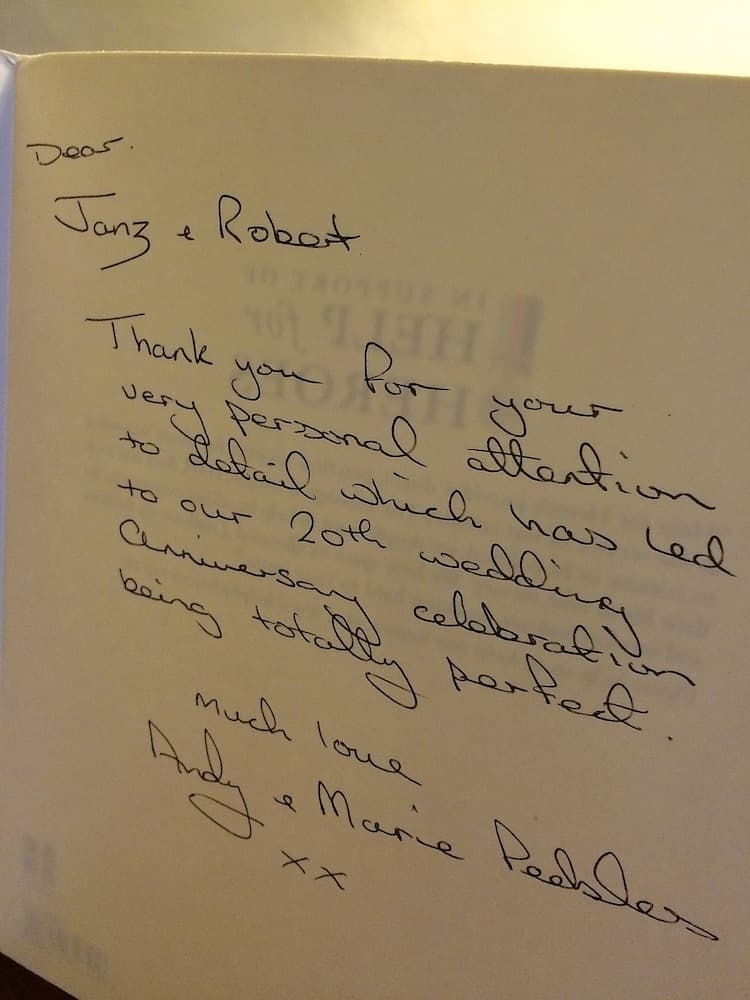 Dear.
Janz & Robert
Thank you for your
very personal attention
to detail which has led
to our 20th wedding
anniversary celebration
being totally perfect.
Much love
Andy & Marie Peebles
xx
IN SUPPORT OF
HELP for
HEROES